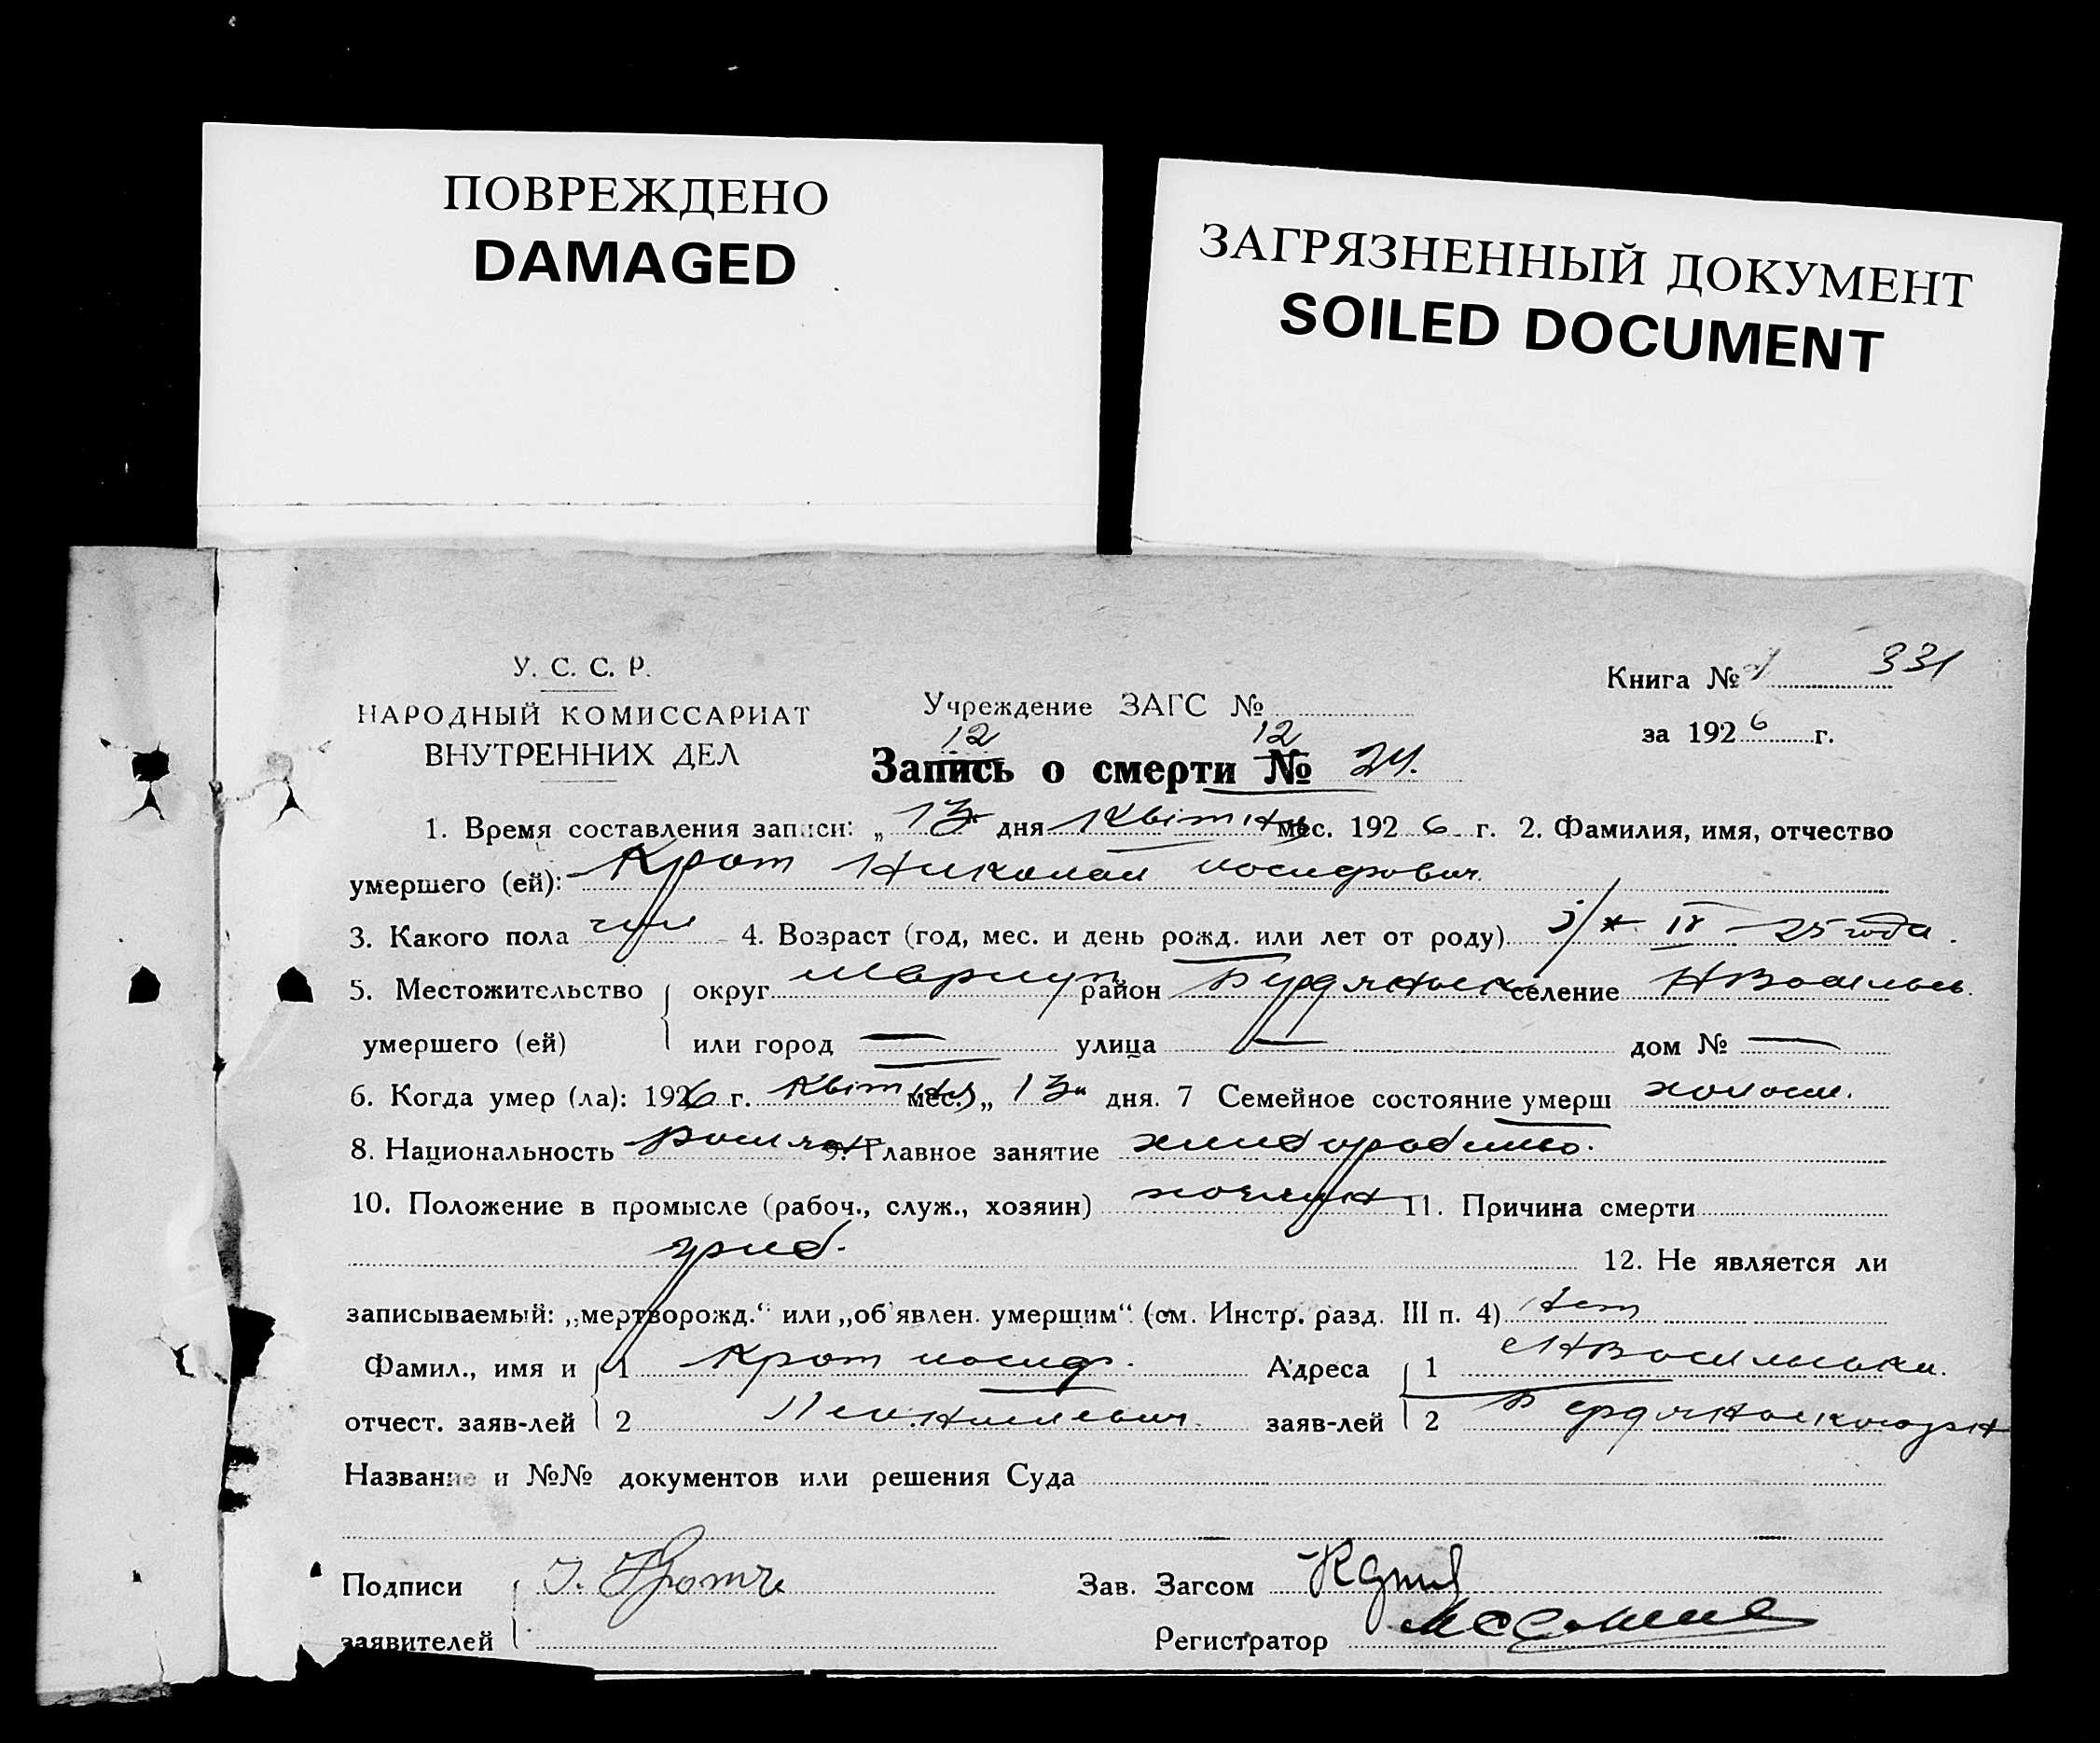 ПОВРЕЖДЕНО
DAMAGED
ЗАГРЯЗНЕННЫЙ ДОКУМЕНТ
SOILED DOCUMENT
У. С. С. Р.
НАРОДНЫЙ КОМИССАРИАТ
ВНУТРЕННИХ ДЕЛ
Учреждение ЗАГС №
Книга № 331
за 1926 г.
12 12
Запись о смерти № 24.
1. Время составления записи: „13" дня Квітня мес. 1926 г. 2. Фамилия, имя, отчество
умершего (ей): Крот Николай иосифович
3. Какого пола 4. Возраст (год, мес. и день рожд. или лет от роду) 25 года.
5. Местожительство округ Мариуп район селение
умершего (ей) или город — улица — дом № —
6. Когда умер (ла): 1926 г. Квітня мес. „13" дня. 7 Семейное состояние умерш холост.
8. Национальность 9. Главное занятие
10. Положение в промысле (рабоч., служ., хозяин) 11. Причина смерти
12. Не является ли
записываемый: „мертворожд.“ или „об'явлен. умершим“ (см. Инстр. разд. III п. 4) нет
Фамил., имя и 1 Крот иосиф. Адреса 1
отчест. заяв-лей 2 заяв-лей 2
Название и №№ документов или решения Суда
Подписи Зав. Загсом
заявителей Регистратор